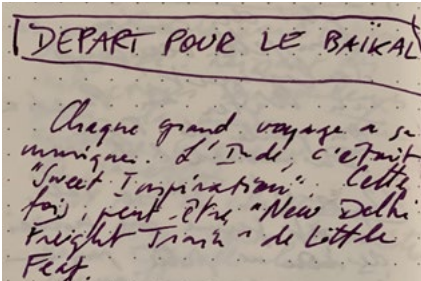 DEPART POUR LE BAÏKAL
Chaque grand voyage a sa
musique. L'Inde, c'était
"Sweet Inspiration". Cette
fois, peut-être "New Delhi
Freight Train" de Little
Feat.